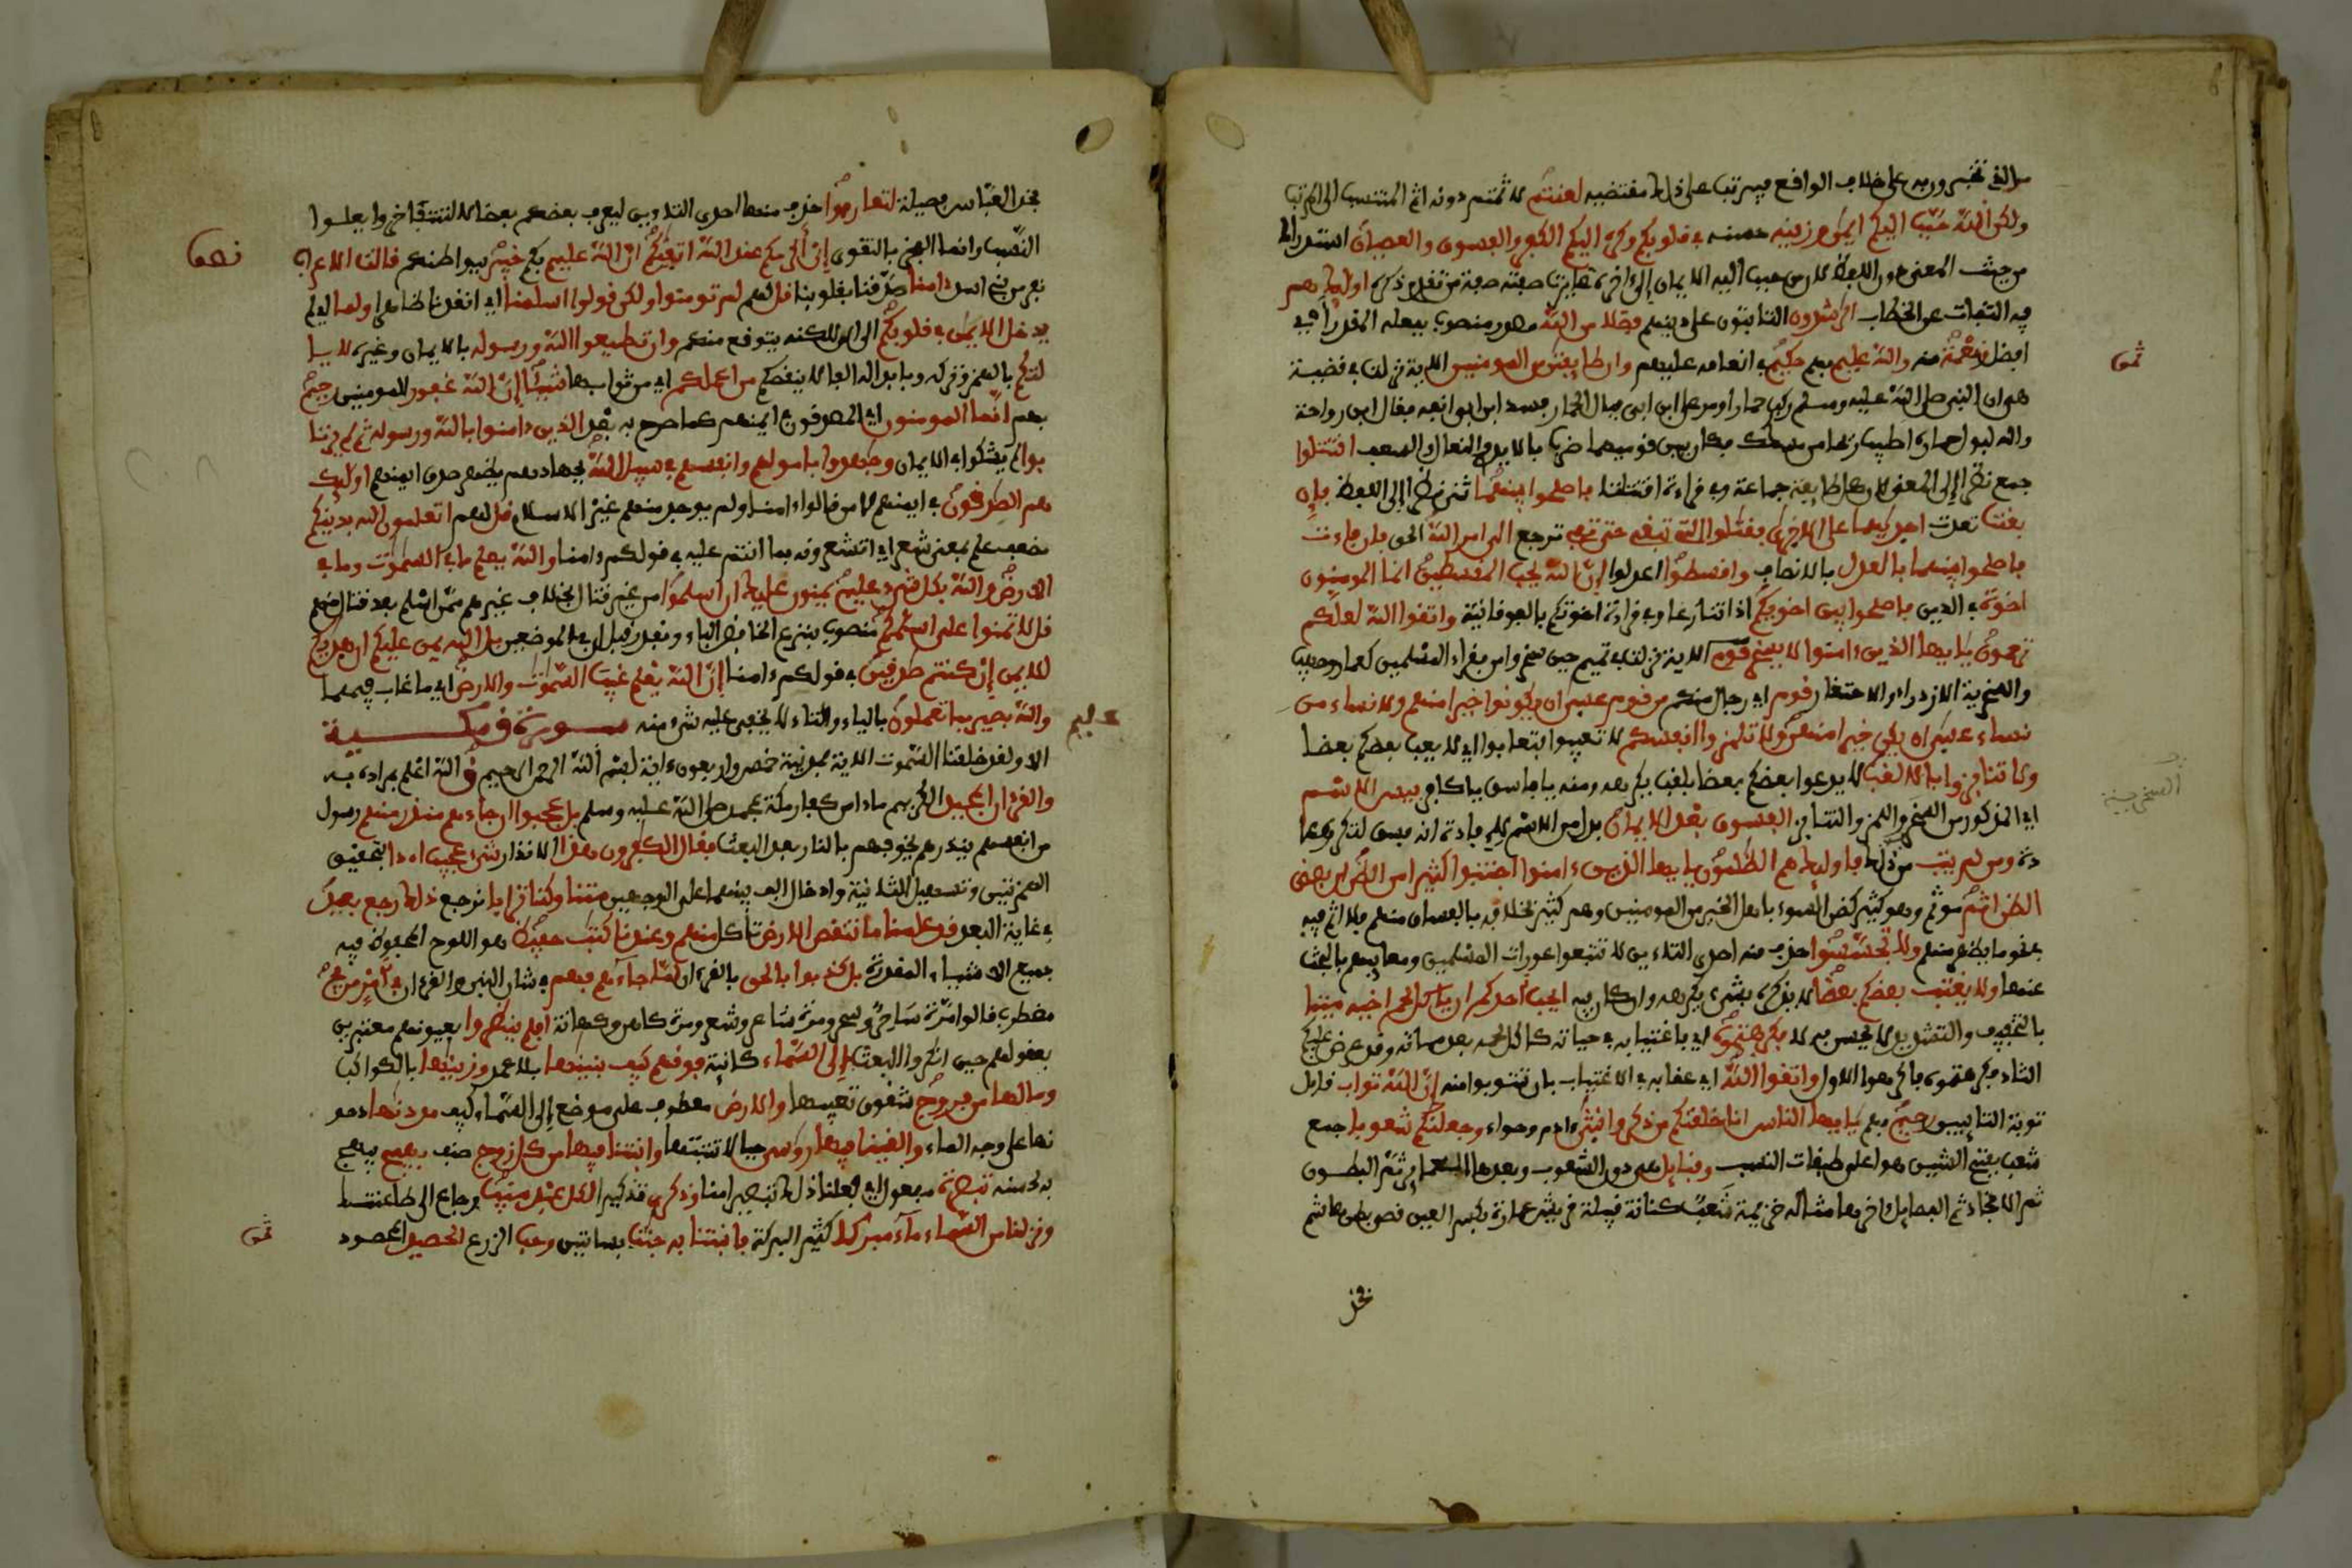 من الذي تخبرون به على خلاف الواقع فيرتب على ذلك مقتضيه لعنتم لاثمتم دونه اثم المتسبب الى المرتب
ولكن الله حبب اليكم الايمن وزينه حسنه في قلوبكم وكره اليكم الكفر والفسوق والعصيان استدراك
من حيث المعنى دون اللفظ لان من حبب اليه الايمان إلى اخره غايرت صفته صفة من تقدم ذكره اولئك هم
فيه التفات عن الخطاب الرشدون الثابتون على دينهم فضلا من الله مصدر منصوب بفعله المقدر أي
افضل ونعمة منه والله عليم بهم حكيم في انعامه عليهم وان طايفتن من المومنين الاية نزلت في قضية
هي ان النبي صلى الله عليه وسلم ركب حمارا ومر على ابن ابي فبال الحمار فسد ابن ابي انفه فقال ابن رواحة
والله لبول حماره اطيب ريحا من مسكك فكان بين قوميهما ضرب بالايدي والنعال والسعف اقتتلوا
جمع نظرا إلى المعنى لان كل طايفة جماعة وفي قراءة اقتتلتا فاصلحوا بينهما ثنى نظرا إلى اللفظ فإن
بغت تعدت احديهما على الاخرى فقتلوا التي تبغي حتى تفيء ترجع الى امر الله الحق فان فاءت
فاصلحوا بينهما بالعدل بالانصاف واقسطوا اعدلوا إن الله يحب المقسطين انما المومنون
اخوة في الدين فاصلحوا بين اخويكم اذا تنازعا وفي قراءة اخوتكم بالفوقانية واتقوا الله لعلكم
ترحمون يايها الذين ءامنوا لا يسخر قوم الاية نزلت في وفد تميم حين سخروا من فقراء المسلمين كعمار وصهيب
والسخرية الازدراء والاحتقار قوم اي رجال منكم من قوم عسى ان يكونوا خيرا منهم ولا نساء من
نساء عسى ان يكن خيرا منهن ولا تلمزوا انفسكم لا تعيبوا فتعابوا اي لا يعيب بعضكم بعضا
ولا تنابزوا بالالقب لا يدعوا بعضكم بعضا بلقب يكرهه ومنه يا فاسق يا كافر بيس الاسم
اي المذكور من السخرية واللمز والتنابز الفسوق بعد الايمان بدل من الاسم لافادة انه فسق لتكرره عا
دة ومن لم يتب من ذلك فاولئك هم الظلمون يايها الذين ءامنوا اجتنبوا كثيرا من الظن ان بعض
الظن اثم موثم وهو كثير كظن السوء باهل الخير من المومنين وهم كثير بخلافه بالفساق منهم فلا اثم فيه
في نحو ما يظهر منهم ولا تجسسوا حذف منه احدى التاءين لا تتبعوا عورات المسلمين ومعايبهم بالبحث
عنها ولا يغتب بعضكم بعضا لا يذكره بشيء يكرهه وان كان فيه ايحب احدكم ان ياكل لحم اخيه ميتا
بالتخفيف والتشديد لا يحس به لا فكرهتموه اي فاغتيابه في حياته كاكل لحمه بعد مماته وقد عرض عليكم
الثاني فكرهتموه فاكرهوا الاول واتقوا الله اي عقابه في الاغتياب بان تتوبوا منه إن الله تواب قابل
توبة التايبين رحيم بهم يايها الناس انا خلقنكم من ذكر وانثى ءادم وحواء وجعلنكم شعوبا جمع
شعب بفتح الشين هو اعلى طبقات النسب وقبايل هي دون الشعوب وبعدها العماير ثم البطون
ثم الافخاذ ثم الفصايل اخرها مثاله خزيمة شعب كنانة قبيلة قريش عمارة بكسر العين قصي بطن هاشم
فخذ
ثمن
السخرية
فخذ العباس فصيلة لتعارفوا حذف منه احدى التاءين ليعرف بعضكم بعضا لا لتتفاخروا بعلو
النسب وانما الفخر بالتقوى إن أكرمكم عند الله اتقيكم ان الله عليم بكم خبير ببواطنكم قالت الاعراب
نفر من بني اسد ءامنا صدقنا بقلوبنا قل لهم لم تومنوا ولكن قولوا اسلمنا اي انقدنا ظاهرا ولما اي لم
يدخل الايمن في قلوبكم الى الان لكنه يتوقع منكم وان تطيعوا الله ورسوله بالايمان وغيره لا يا
لتكم بالهمز وتركه وبابداله الفا لا ينقصكم من اعملكم اي من ثوابها شيئا إن الله غفور للمومنين رحيم
بهم انما المومنون اي الصادقون في ايمنهم كما صرح به بعد الذين ءامنوا بالله ورسوله ثم لم يرتا
بوا لم يشكوا في الايمان وجهدوا باموالهم وانفسهم في سبيل الله بجهادهم يظهر صدق ايمنهم اولئك
هم الصدقون في ايمنهم لا من قالوا ءامنا ولم يوجد منهم غير الاسلام قل لهم اتعلمون الله بدينكم
مضعف علم بمعنى شعر اي اتشعرونه بما انتم عليه في قولكم ءامنا والله يعلم ما في السموت وما في
الارض والله بكل شيء عليم يمنون عليك ان اسلموا من غير قتال بخلاف غيرهم ممن اسلم بعد قتال منهم
قل لا تمنوا على اسلمكم منصوب بنزع الخافض الباء ويقدر قبل ان في الموضعين بل الله يمن عليكم ان هديكم
للايمن إن كنتم صدقين في قولكم ءامنا إن الله يعلم غيب السموت والارض اي ما غاب فيهما
والله بصير بما تعملون بالياء والتاء لا يخفى عليه شيء منه سورة ق مكية
الا ولقد خلقنا السموت الاية فمدنية خمس واربعون ءاية بسم الله الرحمن الرحيم ق الله اعلم بمراده به
والقرءان المجيد الكريم ما ءامن كفار مكة بمحمد صلى الله عليه وسلم بل عجبوا ان جاءهم منذر منهم رسول
من انفسهم ينذرهم يخوفهم بالنار بعد البعث فقال الكفرون هذا الانذار شيء عجيب اءذا بتحقيق
الهمزتين وتسهيل الثانية وادخال الف بينهما على الوجهين متنا وكنا ترابا نرجع ذلك رجع بعيد
في غاية البعد قد علمنا ما تنقص الارض تاكل منهم وعندنا كتب حفيظ هو اللوح المحفوظ فيه
جميع الاشياء المقدرة بل كذبوا بالحق بالقرءان لما جاءهم فهم في شان النبي والقرءان في أمر مريج
مضطرب قالوا مرة ساحر وسحر ومرة شاعر وشعر ومرة كاهن وكهانة افلم ينظروا بعيونهم معتبرين
بعقولهم حين انكروا البعث إلى السماء كائنة فوقهم كيف بنينها بلا عمد وزينها بالكواكب
وما لها من فروج شقوق تعيبها والارض معطوف على موضع إلى السماء كيف مددنها دحو
نها على وجه الماء والقينا فيها روسي جبالا تثبتها وانبتنا فيها من كل زوج صنف بهيج يبهج
به لحسنه تبصرة مفعول له اي فعلنا ذلك تبصيرا منا وذكرى تذكيرا لكل عبد منيب رجاع الى طاعتنا
ونزلنا من السماء ماء مبركا كثير البركة فانبتنا به جنت بساتين وحب الزرع الحصيد المحصود
نصف
عليم
ثمن